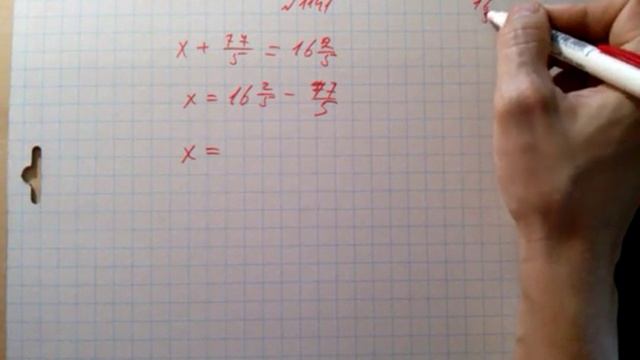 №1141
x + 77/5 = 16 2/5
x = 16 2/5 - 77/5
x =